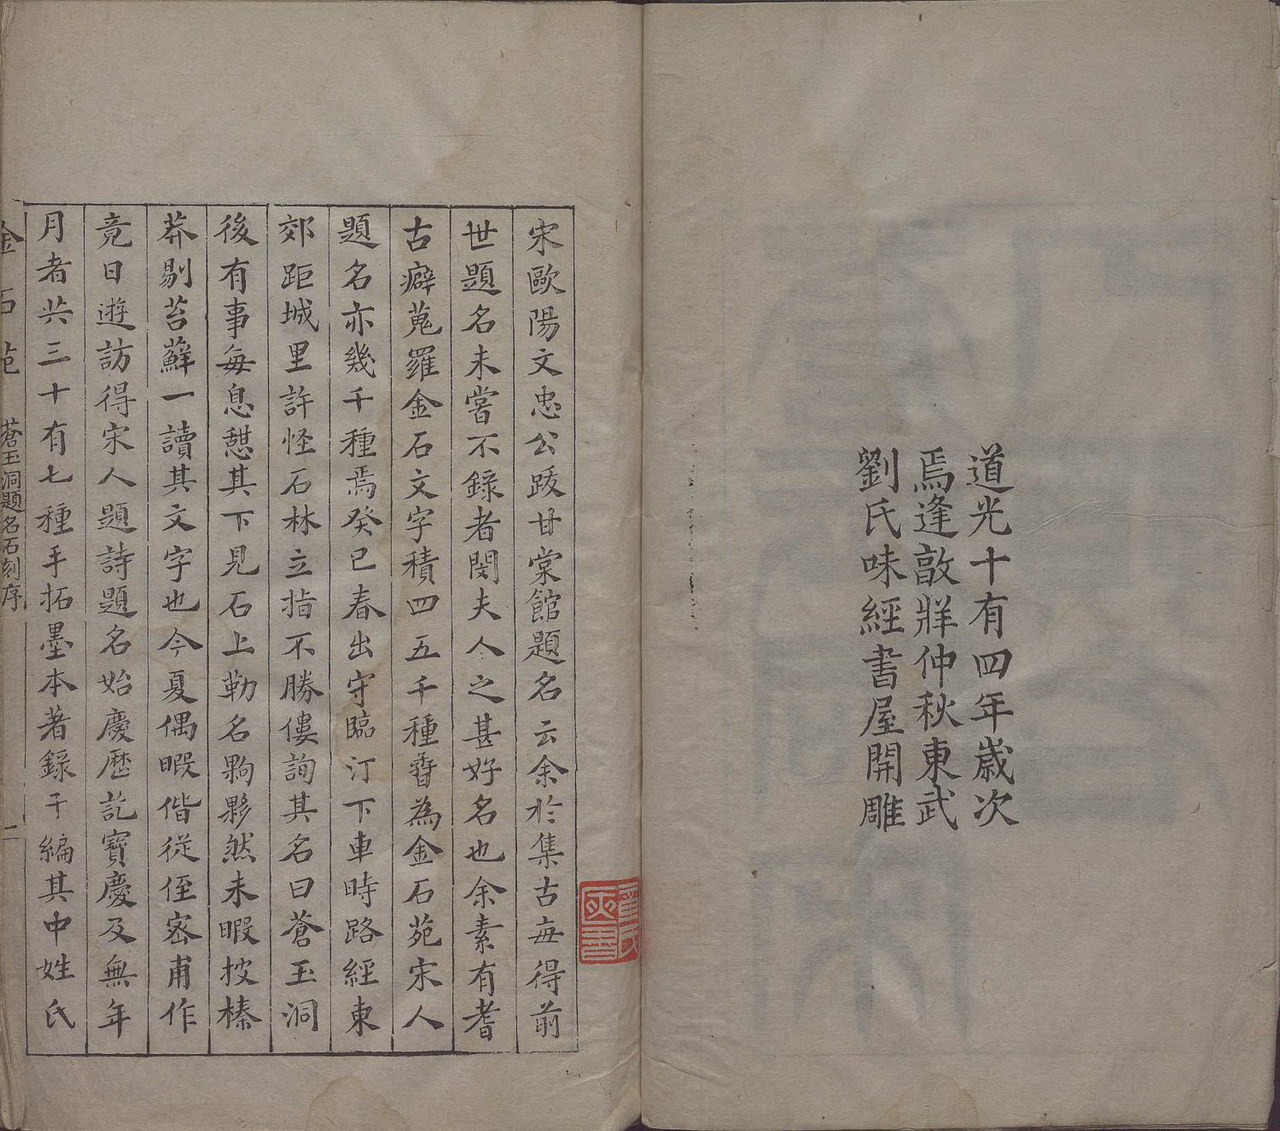 道光十有四年歲次
焉逢敦牂仲秋東武
劉氏味經書屋開雕
宋歐陽文忠公跋甘棠館題名云余於集古每得前
世題名未嘗不錄者閔夫人之甚好名也余素有耆
古癖蒐羅金石文字積四五千種朁為金石苑宋人
題名亦幾千種焉癸巳春出守臨汀下車時路經東
郊距城里許怪石林立指不勝僂詢其名曰蒼玉洞
後有事每息憇其下見石上勒名夠夥然未暇披榛
莽剔苔蘚一讀其文字也今夏偶暇偕從侄宻甫作
竟日遊訪得宋人題詩題名始慶歷訖寶慶及無年
月者共三十有七種手拓墨本著錄于編其中姓氏
金石苑 蒼玉洞題名石刻序 二